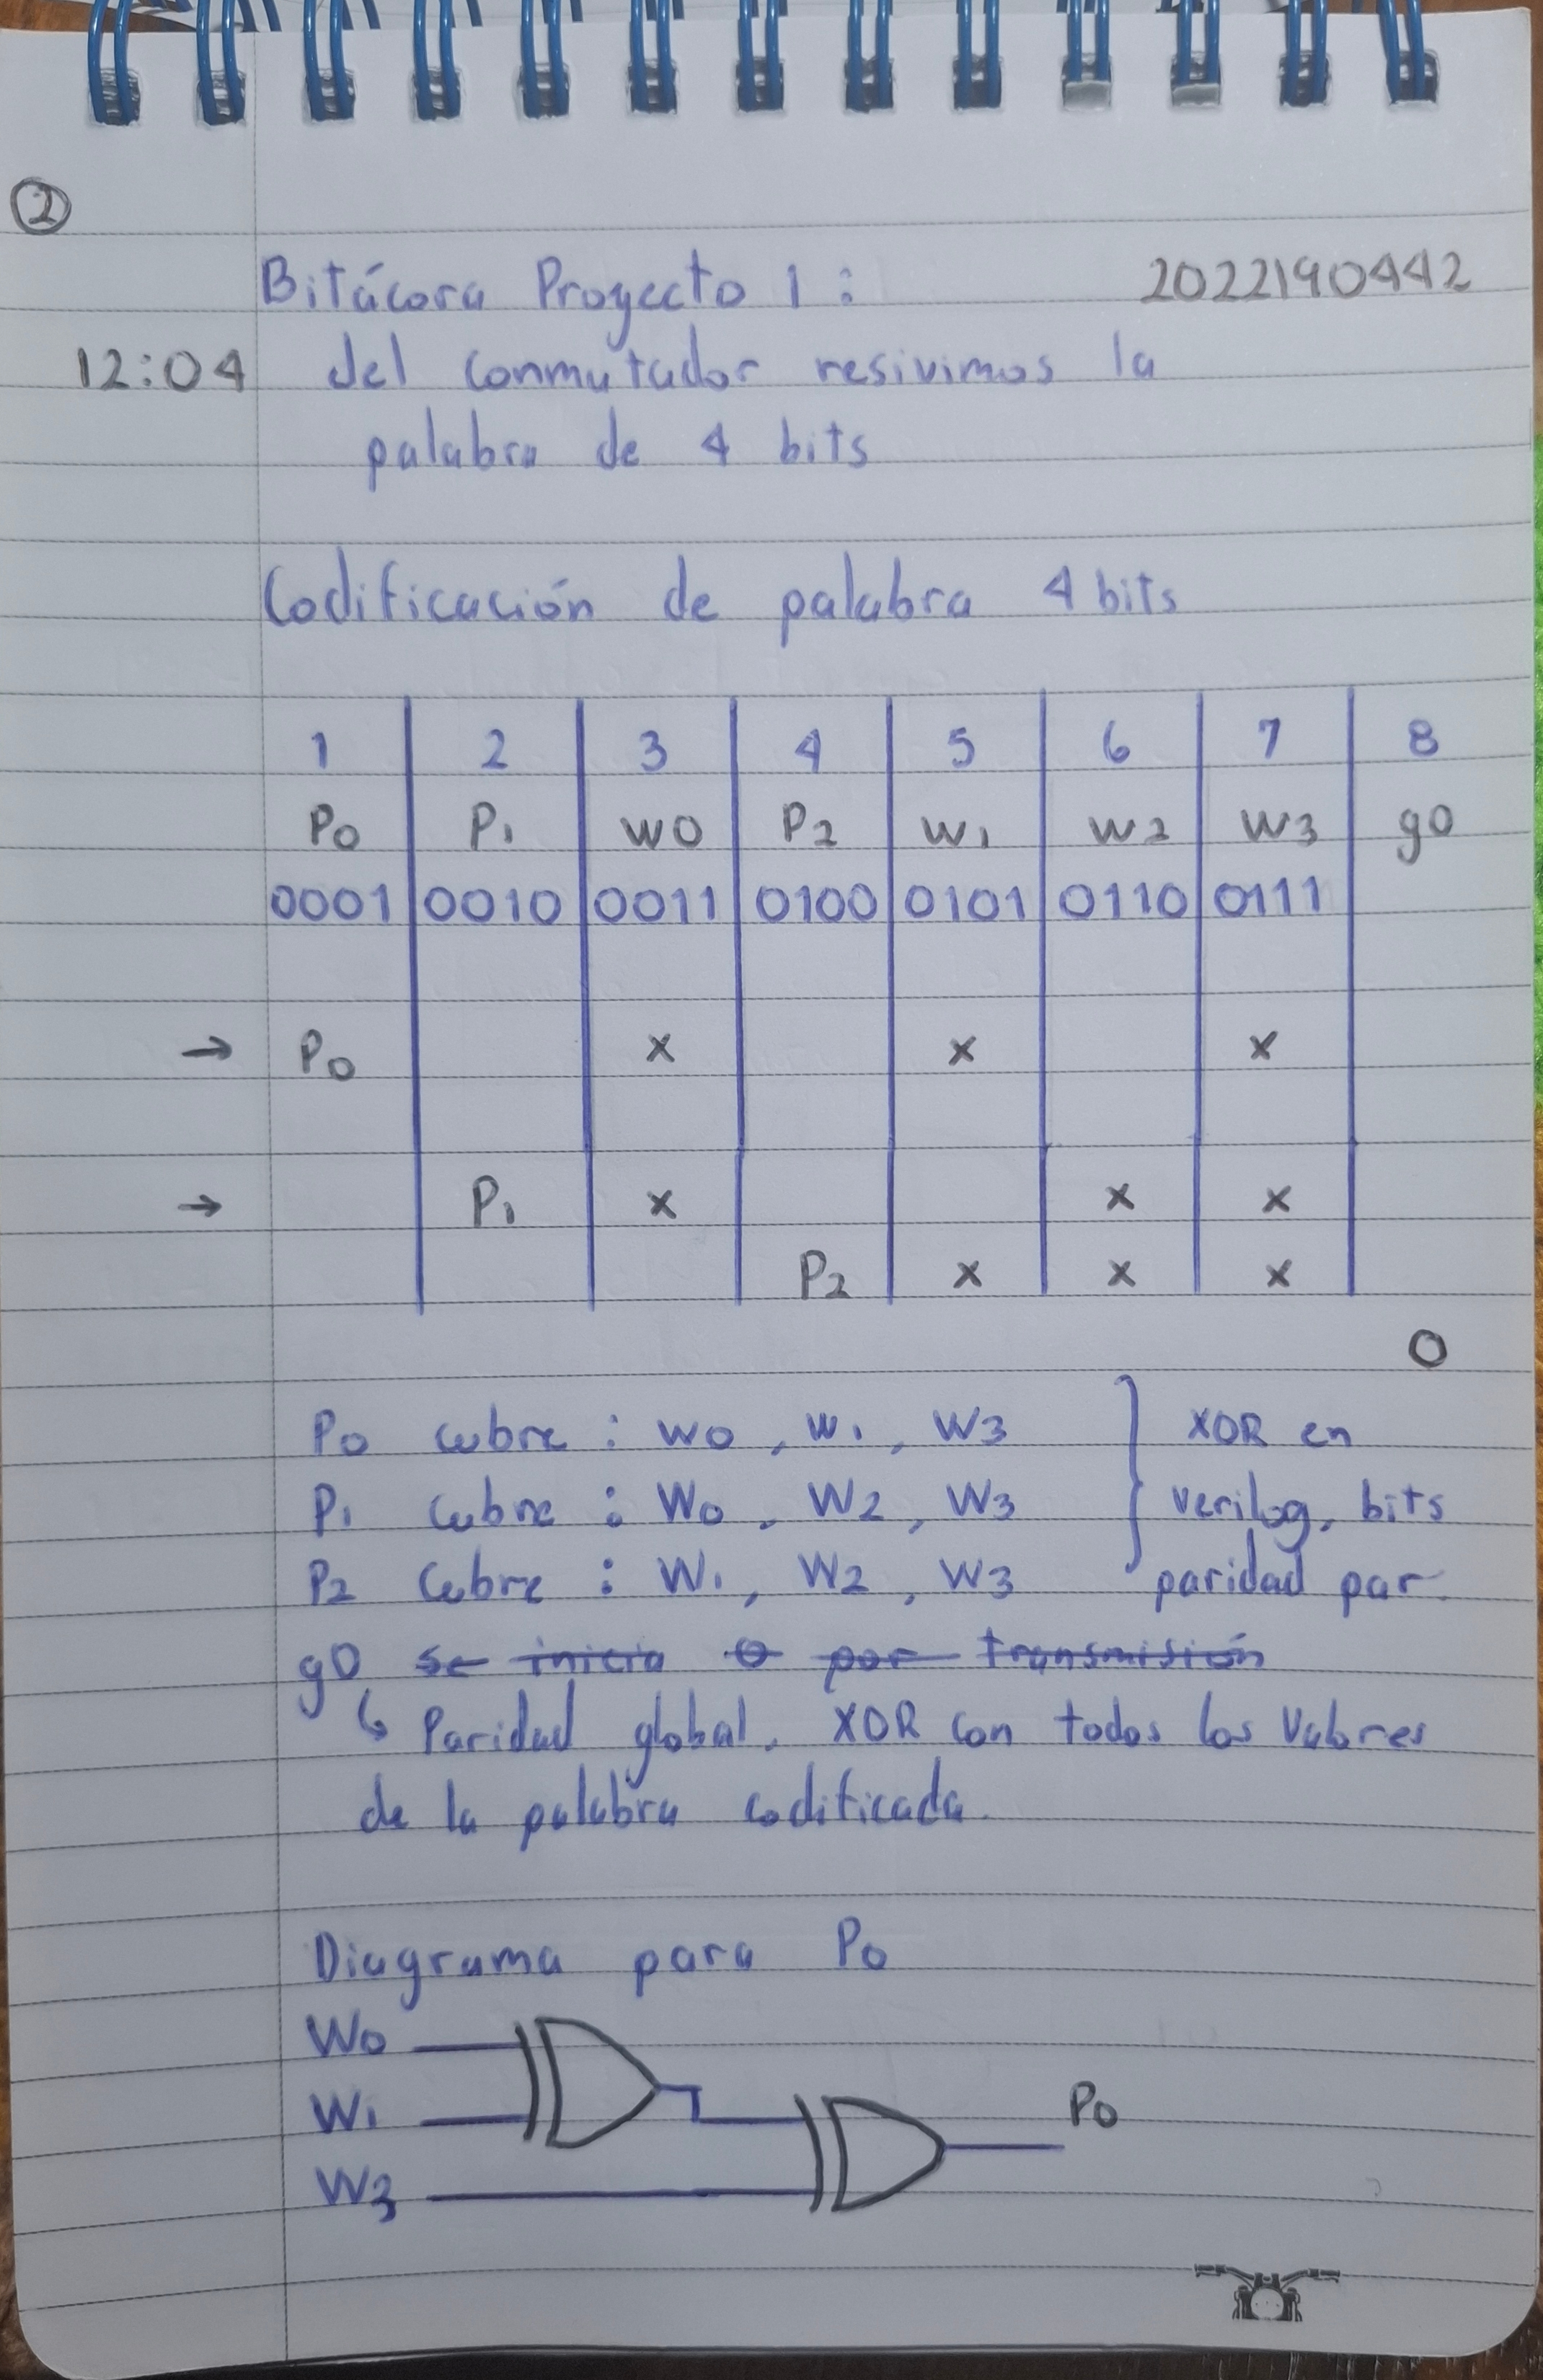 2
Bitácora Proyecto 1 : 2022190442
12:04 del conmutador resivimos la
palabra de 4 bits
Codificación de palabra 4 bits
1 2 3 4 5 6 7 8
P0 P1 W0 P2 W1 W2 W3 g0
0001 0010 0011 0100 0101 0110 0111
→ P0 x x x
→ P1 x x x
P2 x x x
0
P0 cubre : W0 , W1 , W3 } XOR en
P1 cubre : W0 , W2 , W3 verilog, bits
P2 cubre : W1 , W2 , W3 paridad par.
g0 se inicia 0 por transmisión
↳ Paridad global. XOR con todos los valores
de la palabra codificada.
Diagrama para P0
W0
W1
P0
W3